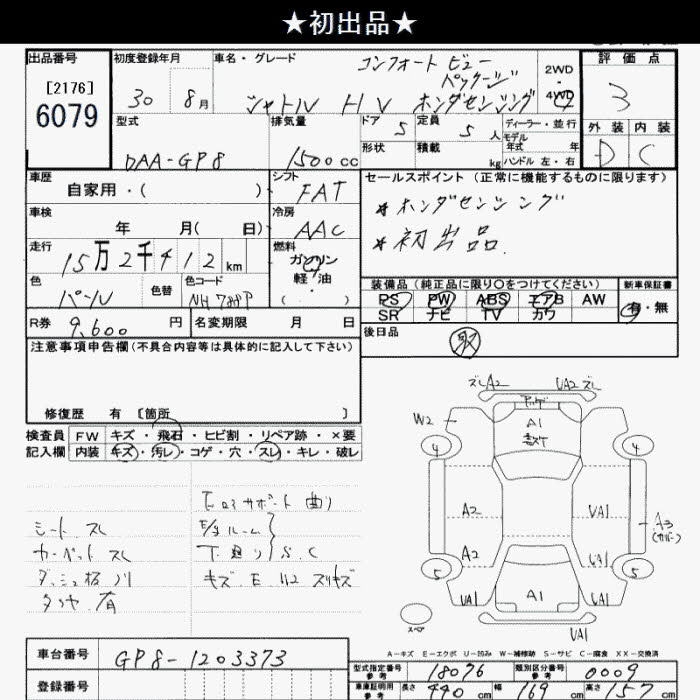 ★初出品★
出品番号 初度登録年月 車名・グレード 評価点
[2176]
6079
30 8月
コンフォート ビュー
パッケージ
シャトル HV ホンダセンシング
2WD
4WD
3
型式 排気量 ドア 5 定員 5 人 ディーラー・並行
モデル
年式 年
外装 内装
DAA-GP8 1500cc 形状 積載 kg ハンドル 左・右
D C
車歴 シフト セールスポイント (正常に機能するものに限ります)
自家用・( ) FAT
*ホンダセンシング
車検 冷房
年 月( 日) AAC
*初出品
走行 燃料
15万2千412 km ガソリン
軽・油
( )
色 色替 色コード
パール NH788P
装備品 (純正品に限り〇をつけてください) 新車保証書
PS PW ABS エアB AW
SR ナビ TV カワ
有・無
R券 9,600 円 名変期限 月 日
後日品 取
注意事項申告欄 (不具合内容等は具体的に記入して下さい)
修復歴 有 [箇所 ]
検査員 FW キズ・飛石・ヒビ割・リペア跡・×要
記入欄 内装 キズ・汚レ・コゲ・穴・スレ・キレ・破レ
シート スレ
カーペット スレ
タイヤ 有
下回り S.C
ズレA2 UA2ズレ
W2
A1
4 4
A2 UA1
A2 UA1
A3
5 5
UA1 A1 UA1
スペア
UA1
A-キズ E-エクボ U-凹み W-補修跡 S-サビ C-腐食 XX-交換済
車台番号 GP8-1203373
登録番号
型式指定番号 参考 18076 類別区分番号 参考 0009
車庫証明用 参考 長さ 440 cm 幅 169 cm 高さ 157 cm